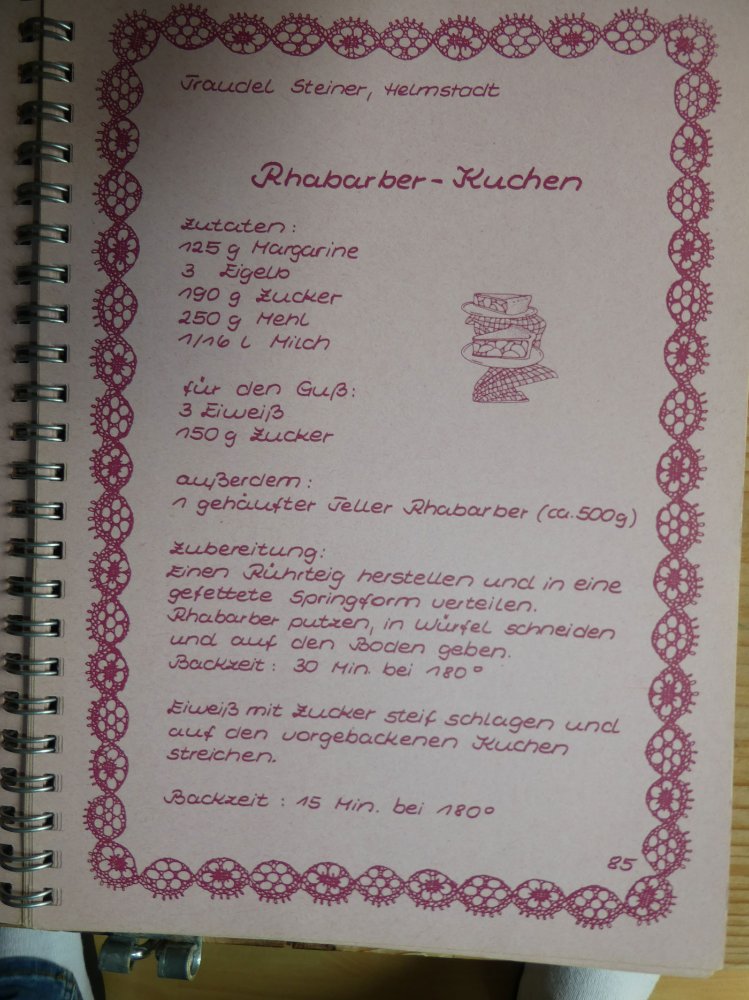 Traudel Steiner, Helmstadt
Rhabarber-Kuchen
Zutaten:
125 g Margarine
3 Eigelb
190 g Zucker
250 g Mehl
1/16 l Milch
für den Guß:
3 Eiweiß
150 g Zucker
außerdem:
1 gehäufter Teller Rhabarber (ca. 500g)
Zubereitung:
Einen Rührteig herstellen und in eine
gefettete Springform verteilen.
Rhabarber putzen, in Würfel schneiden
und auf den Boden geben.
Backzeit: 30 Min. bei 180°
Eiweiß mit Zucker steif schlagen und
auf den vorgebackenen Kuchen
streichen.
Backzeit : 15 Min. bei 180°
85